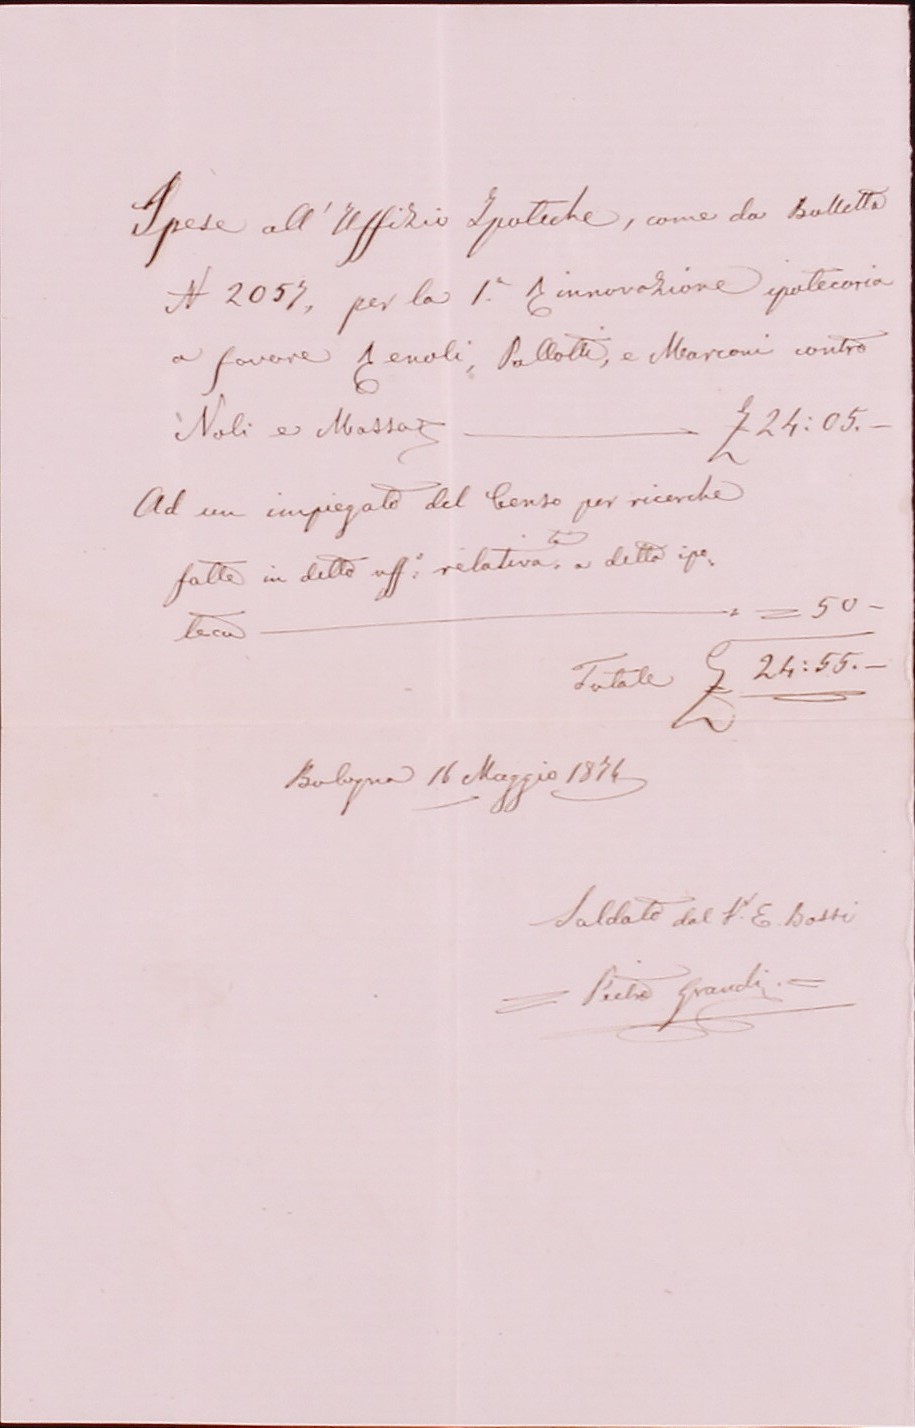 Spese all'Uffizio Ipoteche, come da Bolletta
N 2057, per la 1.a Rinnovazione ipotecaria
a favore Zenoli, Pallotti, e Marconi contro
Noli e Massa £ 24:05.-
Ad un impiegato del Censo per ricerche
fatte in detto uff.o relativa.te a detta ipo=
teca " = 50-
Totale £ 24:55.-
Bologna 16 Maggio 1874
Saldato dal Sr. E. Bossi
= Pietro Grandi.=